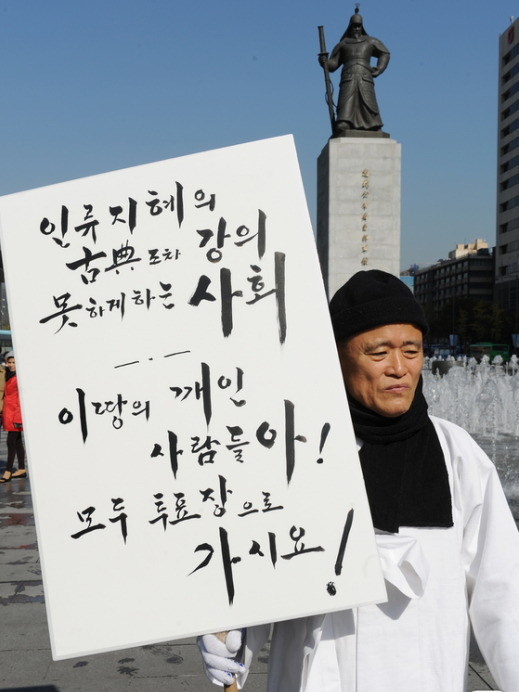 인류 지혜의
古典 조차 강의
못하게하는 사회
이땅의 깨인
사람들아!
모두 투표장으로
가시요!